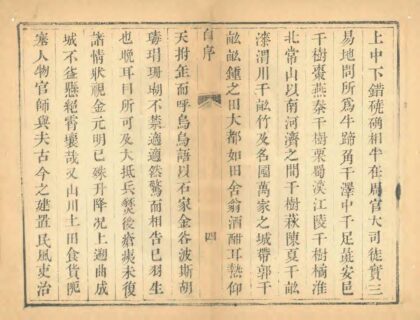 上中下錯磽确相半在周官大司徒實三
易地問所爲牛蹄角千澤中千足彘安邑
千樹棗燕秦千樹栗蜀漢江陵千樹橘淮
北常山以南河濟之間千樹萩陳夏千畝
漆渭川千畝竹及名國萬家之城帶郭千
畝畝鍾之田大都如田舍翁酒酣耳熱仰
自序
四
天拊缶而呼烏烏語以石家金谷波斯胡
瑇瑁珊瑚不禁適適然驚而相告已羽生
也晩耳目所可及大抵兵燹後瘡痍未復
諸情狀視金元明已殊升降况上遡曲成
城不啻懸絕霄壤哉又山川土田食貨阨
塞人物官師與夫古今之建置民風吏治